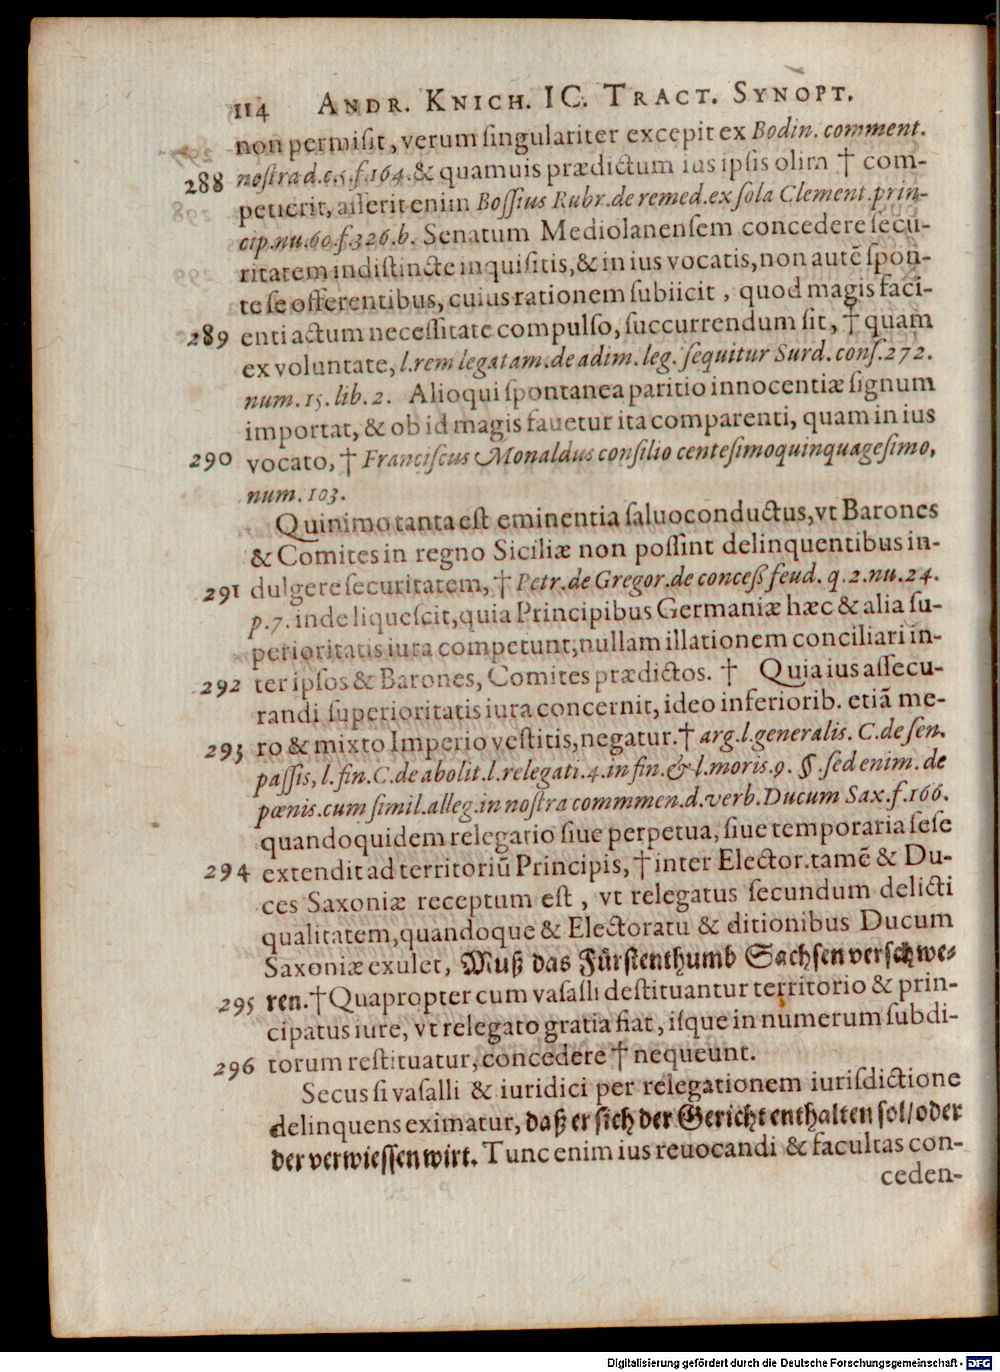 114 ANDR. KNICH. IC. TRACT. SYNOPT.
non permiſit, verum ſingulariter excepit ex Bodin. comment.
288 noſtra d.c.5.f.164. & quamuis prædictum ius ipſis olim † com-
petierit, aſſerit enim Boſſius Rubr.de remed.ex ſola Clement.prin-
cip.nu.60.f.326.b. Senatum Mediolanenſem concedere ſecu-
ritatem indiſtincte inquiſitis, & in ius vocatis, non autẽ ſpon-
te ſe offerentibus, cuius rationem ſubiicit, quod magis faci-
289 enti actum neceſſitate compulſo, ſuccurrendum ſit, † quam
ex voluntate, l.rem legatam.de adim. leg. ſequitur Surd. conſ.272.
num.15. lib.2. Alioqui ſpontanea paritio innocentiæ ſignum
importat, & ob id magis fauetur ita comparenti, quam in ius
290 vocato, † Franciſcus Monaldus conſilio centeſimoquinquageſimo,
num.103.
Quinimo tanta eſt eminentia ſaluoconductus, vt Barones
& Comites in regno Siciliæ non poſſint delinquentibus in-
291 dulgere ſecuritatem, † Petr.de Gregor.de conceß feud. q.2.nu.24.
p.7. inde liqueſcit, quia Principibus Germaniæ hæc & alia ſu-
perioritatis iura competunt, nullam illationem conciliari in-
292 ter ipſos & Barones, Comites prædictos. † Quia ius aſſecu-
randi ſuperioritatis iura concernit, ideo inferiorib. etiã me-
293 ro & mixto Imperio veſtitis, negatur. † arg.l.generalis. C.de ſen.
paſſis, l.fin.C.de abolit.l.relegati.4.in fin.& l.moris.9. §.ſed enim.de
pœnis.cum ſimil.alleg.in noſtra commmen.d.verb.Ducum Sax.f.166.
quandoquidem relegatio ſiue perpetua, ſiue temporaria ſeſe
294 extendit ad territoriũ Principis, † inter Elector.tamẽ & Du-
ces Saxoniæ receptum eſt, vt relegatus ſecundum delicti
qualitatem, quandoque & Electoratu & ditionibus Ducum
Saxoniæ exulet, Muß das Fürſtenthumb Sachſen verſchwe-
295 ren. † Quapropter cum vaſalli deſtituantur territorio & prin-
cipatus iure, vt relegato gratia fiat, iſque in numerum ſubdi-
296 torum reſtituatur, concedere † nequeunt.
Secus ſi vaſalli & iuridici per relegationem iurisdictione
delinquens eximatur, daß er ſich der Gericht enthalten ſol/ oder
der verwieſſen wirt. Tunc enim ius reuocandi & facultas con-
ceden-
Digitalisierung gefördert durch die Deutsche Forschungsgemeinschaft - DFG